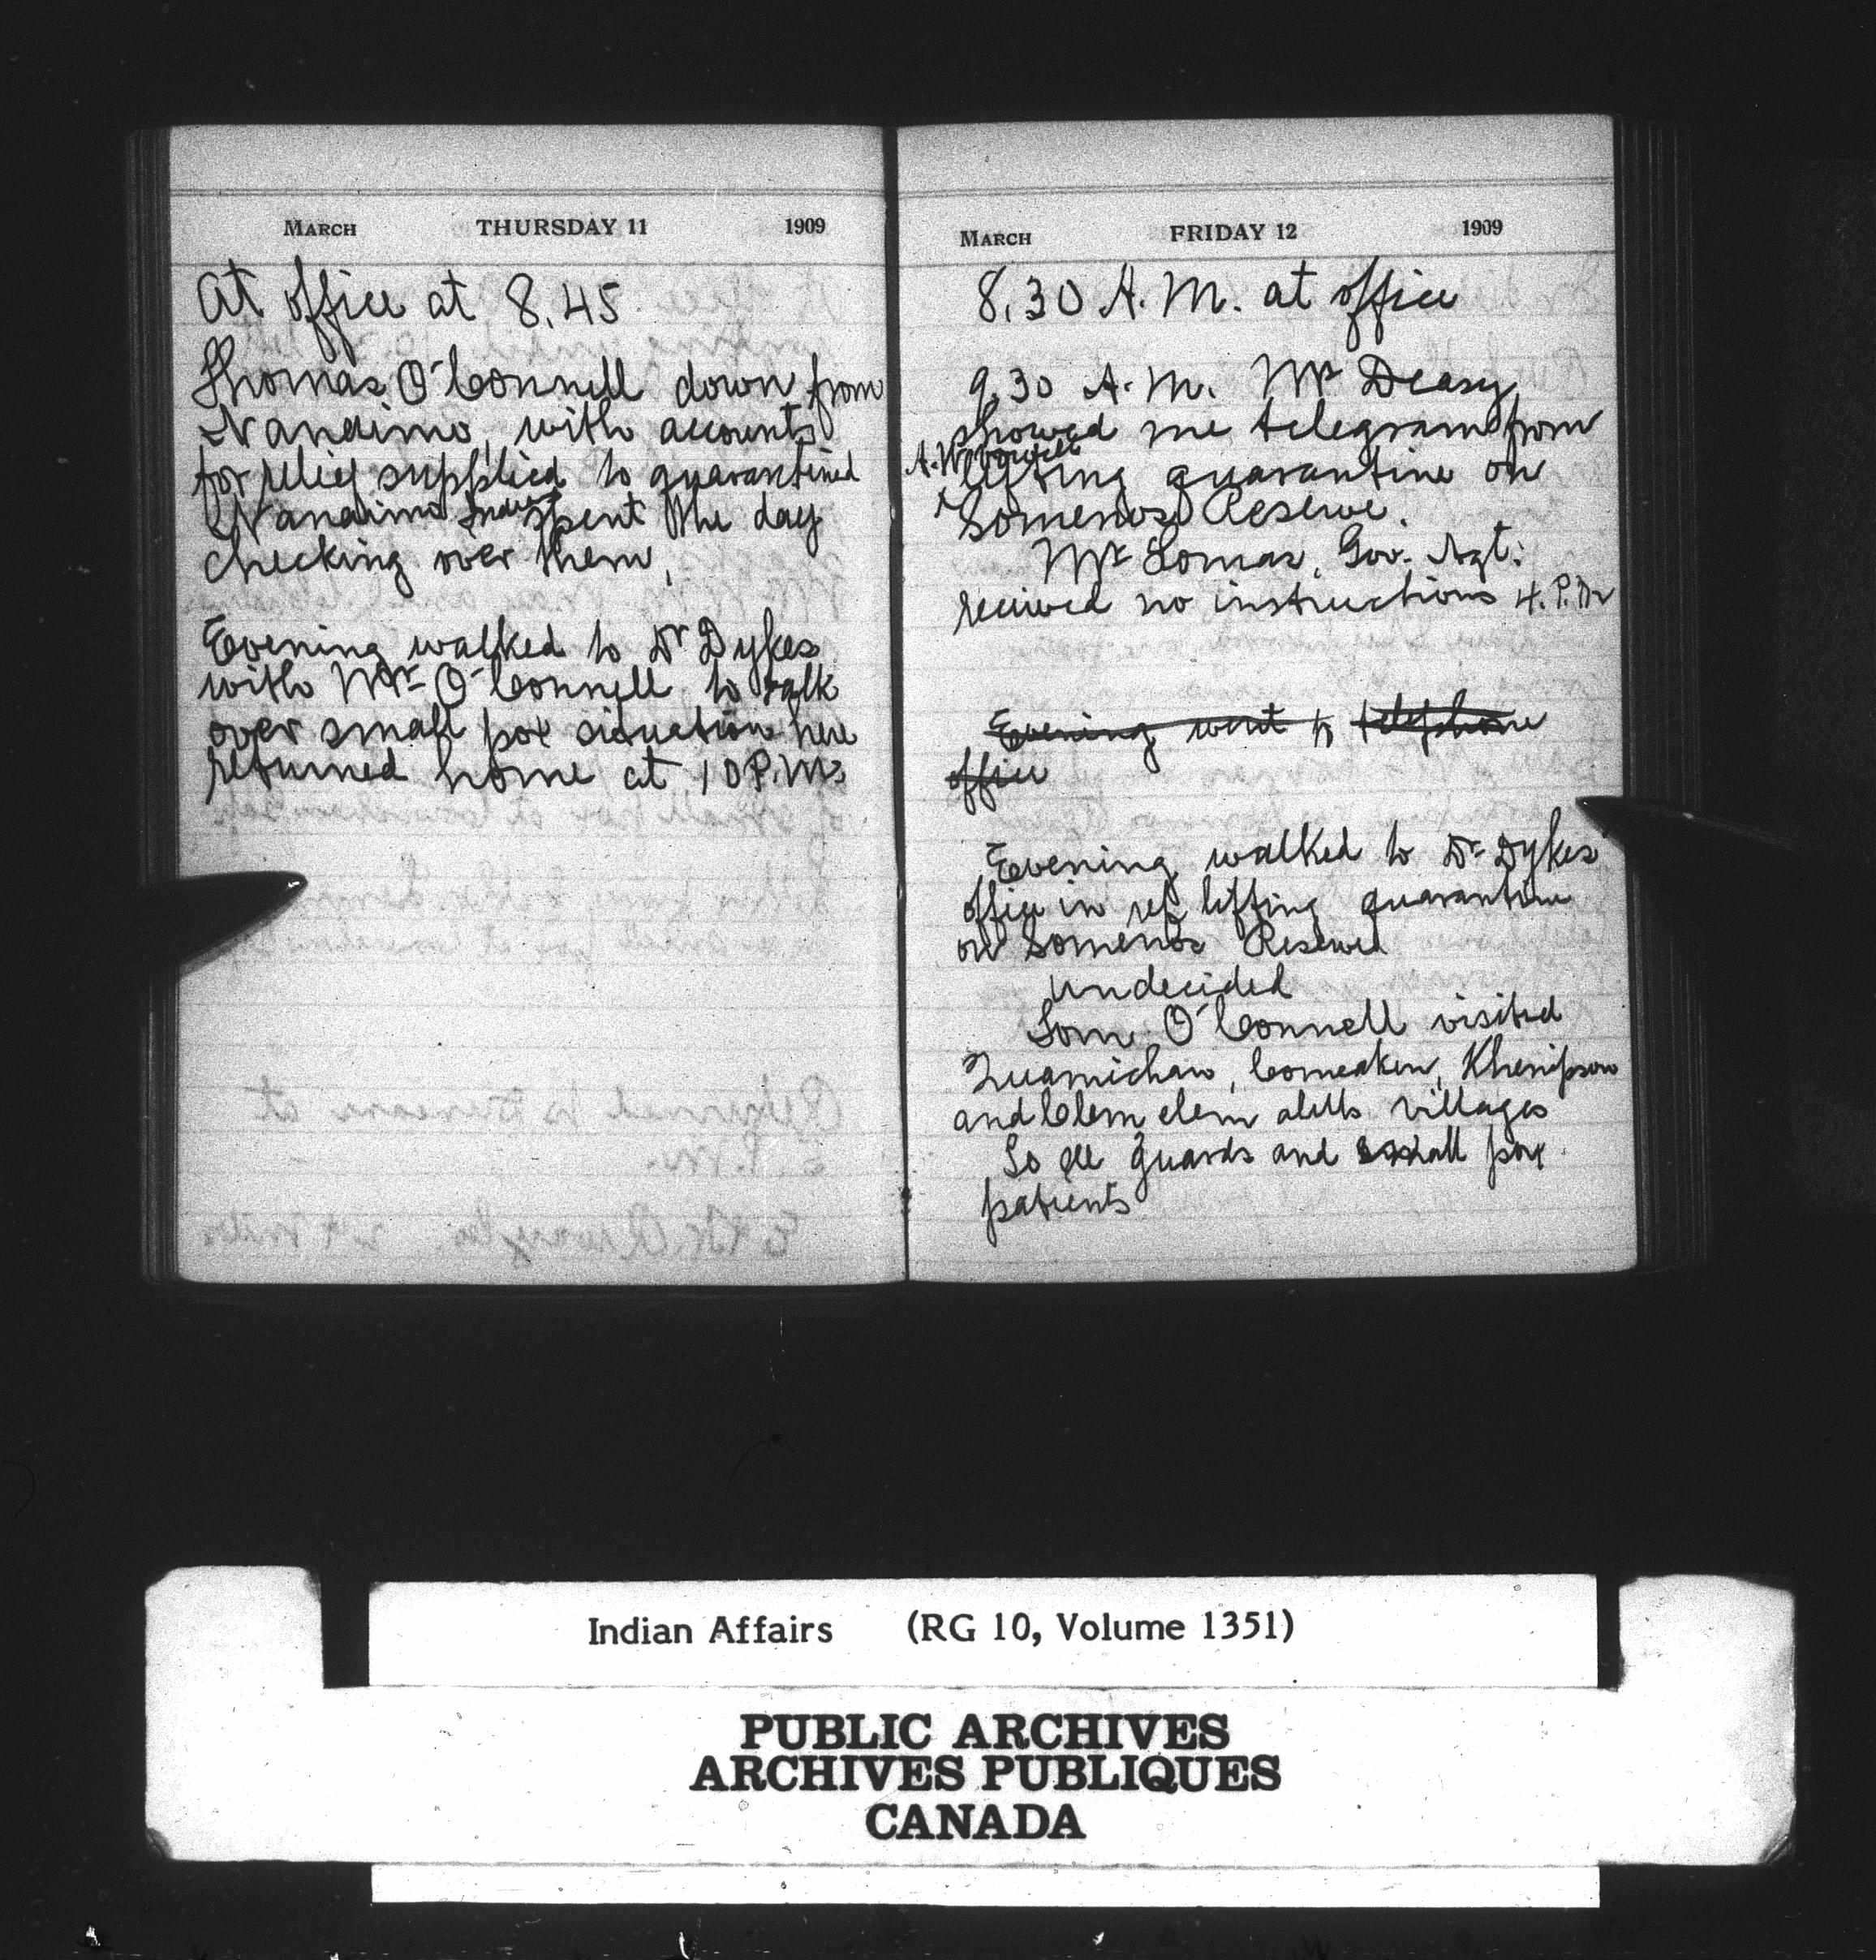 MARCH THURSDAY 11 1909
At office at 8.45
Thomas O'Connell down from
Nanaimo, with accounts
for relief supplied to quarantined
Nanaimo Indians spent the day
checking over them,
Evening walked to Dr Dykes
with Mr O'Connell to talk
over small pox situation here
returned home at 10 P.M.
MARCH FRIDAY 12 1909
8.30 A.M. at office
9.30 A.M. Mr Deasy
showed me telegram from
A.W. Vowell
lifting quarantine on
Somenos Reserve.
Mr Lomas, Gov. Agt.
received no instructions 4. P.M
Evening went to telephone
office
Evening walked to Dr Dykes
office in ref lifting quarantine
on Somenos Reserve
undecided
Tom O'Connell visited
Quamichan, Comeaken, Khenipson
and Clem clem alitts villages
To see guards and small pox
patients
Indian Affairs (RG 10, Volume 1351)
PUBLIC ARCHIVES
ARCHIVES PUBLIQUES
CANADA